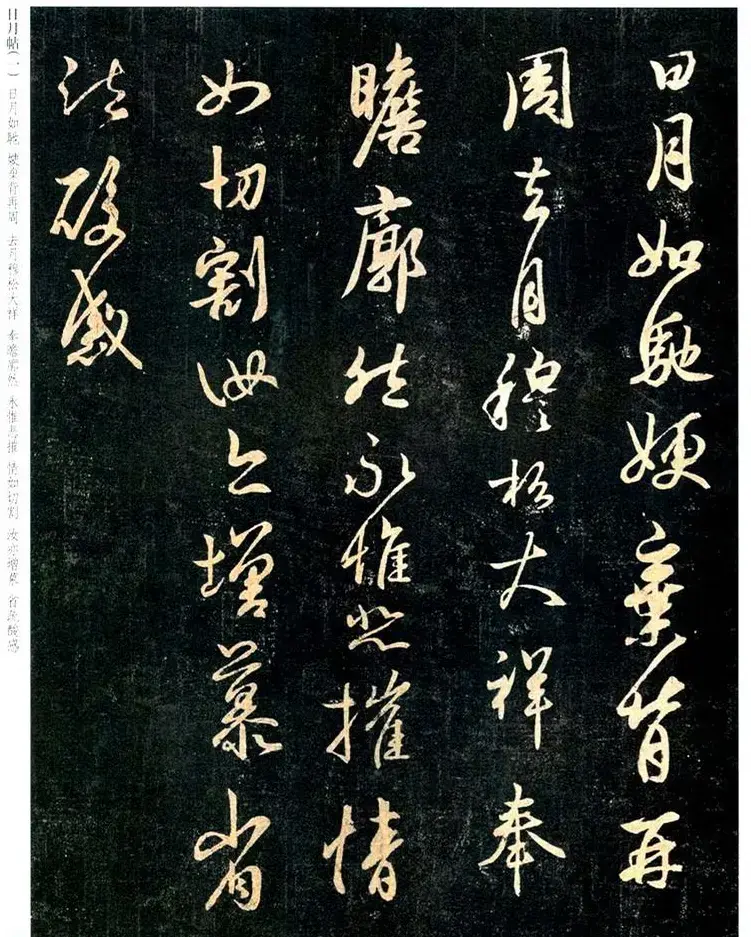 日月如馳嫂棄背再
周去月穆松大祥奉
瞻廓然永惟悲摧情
如切割汝亦增慕省
疏酸感
日月帖(一) 日月如馳 嫂棄背再周 去月穆松大祥 奉瞻廓然 永惟悲摧 情如切割 汝亦增慕 省疏酸感